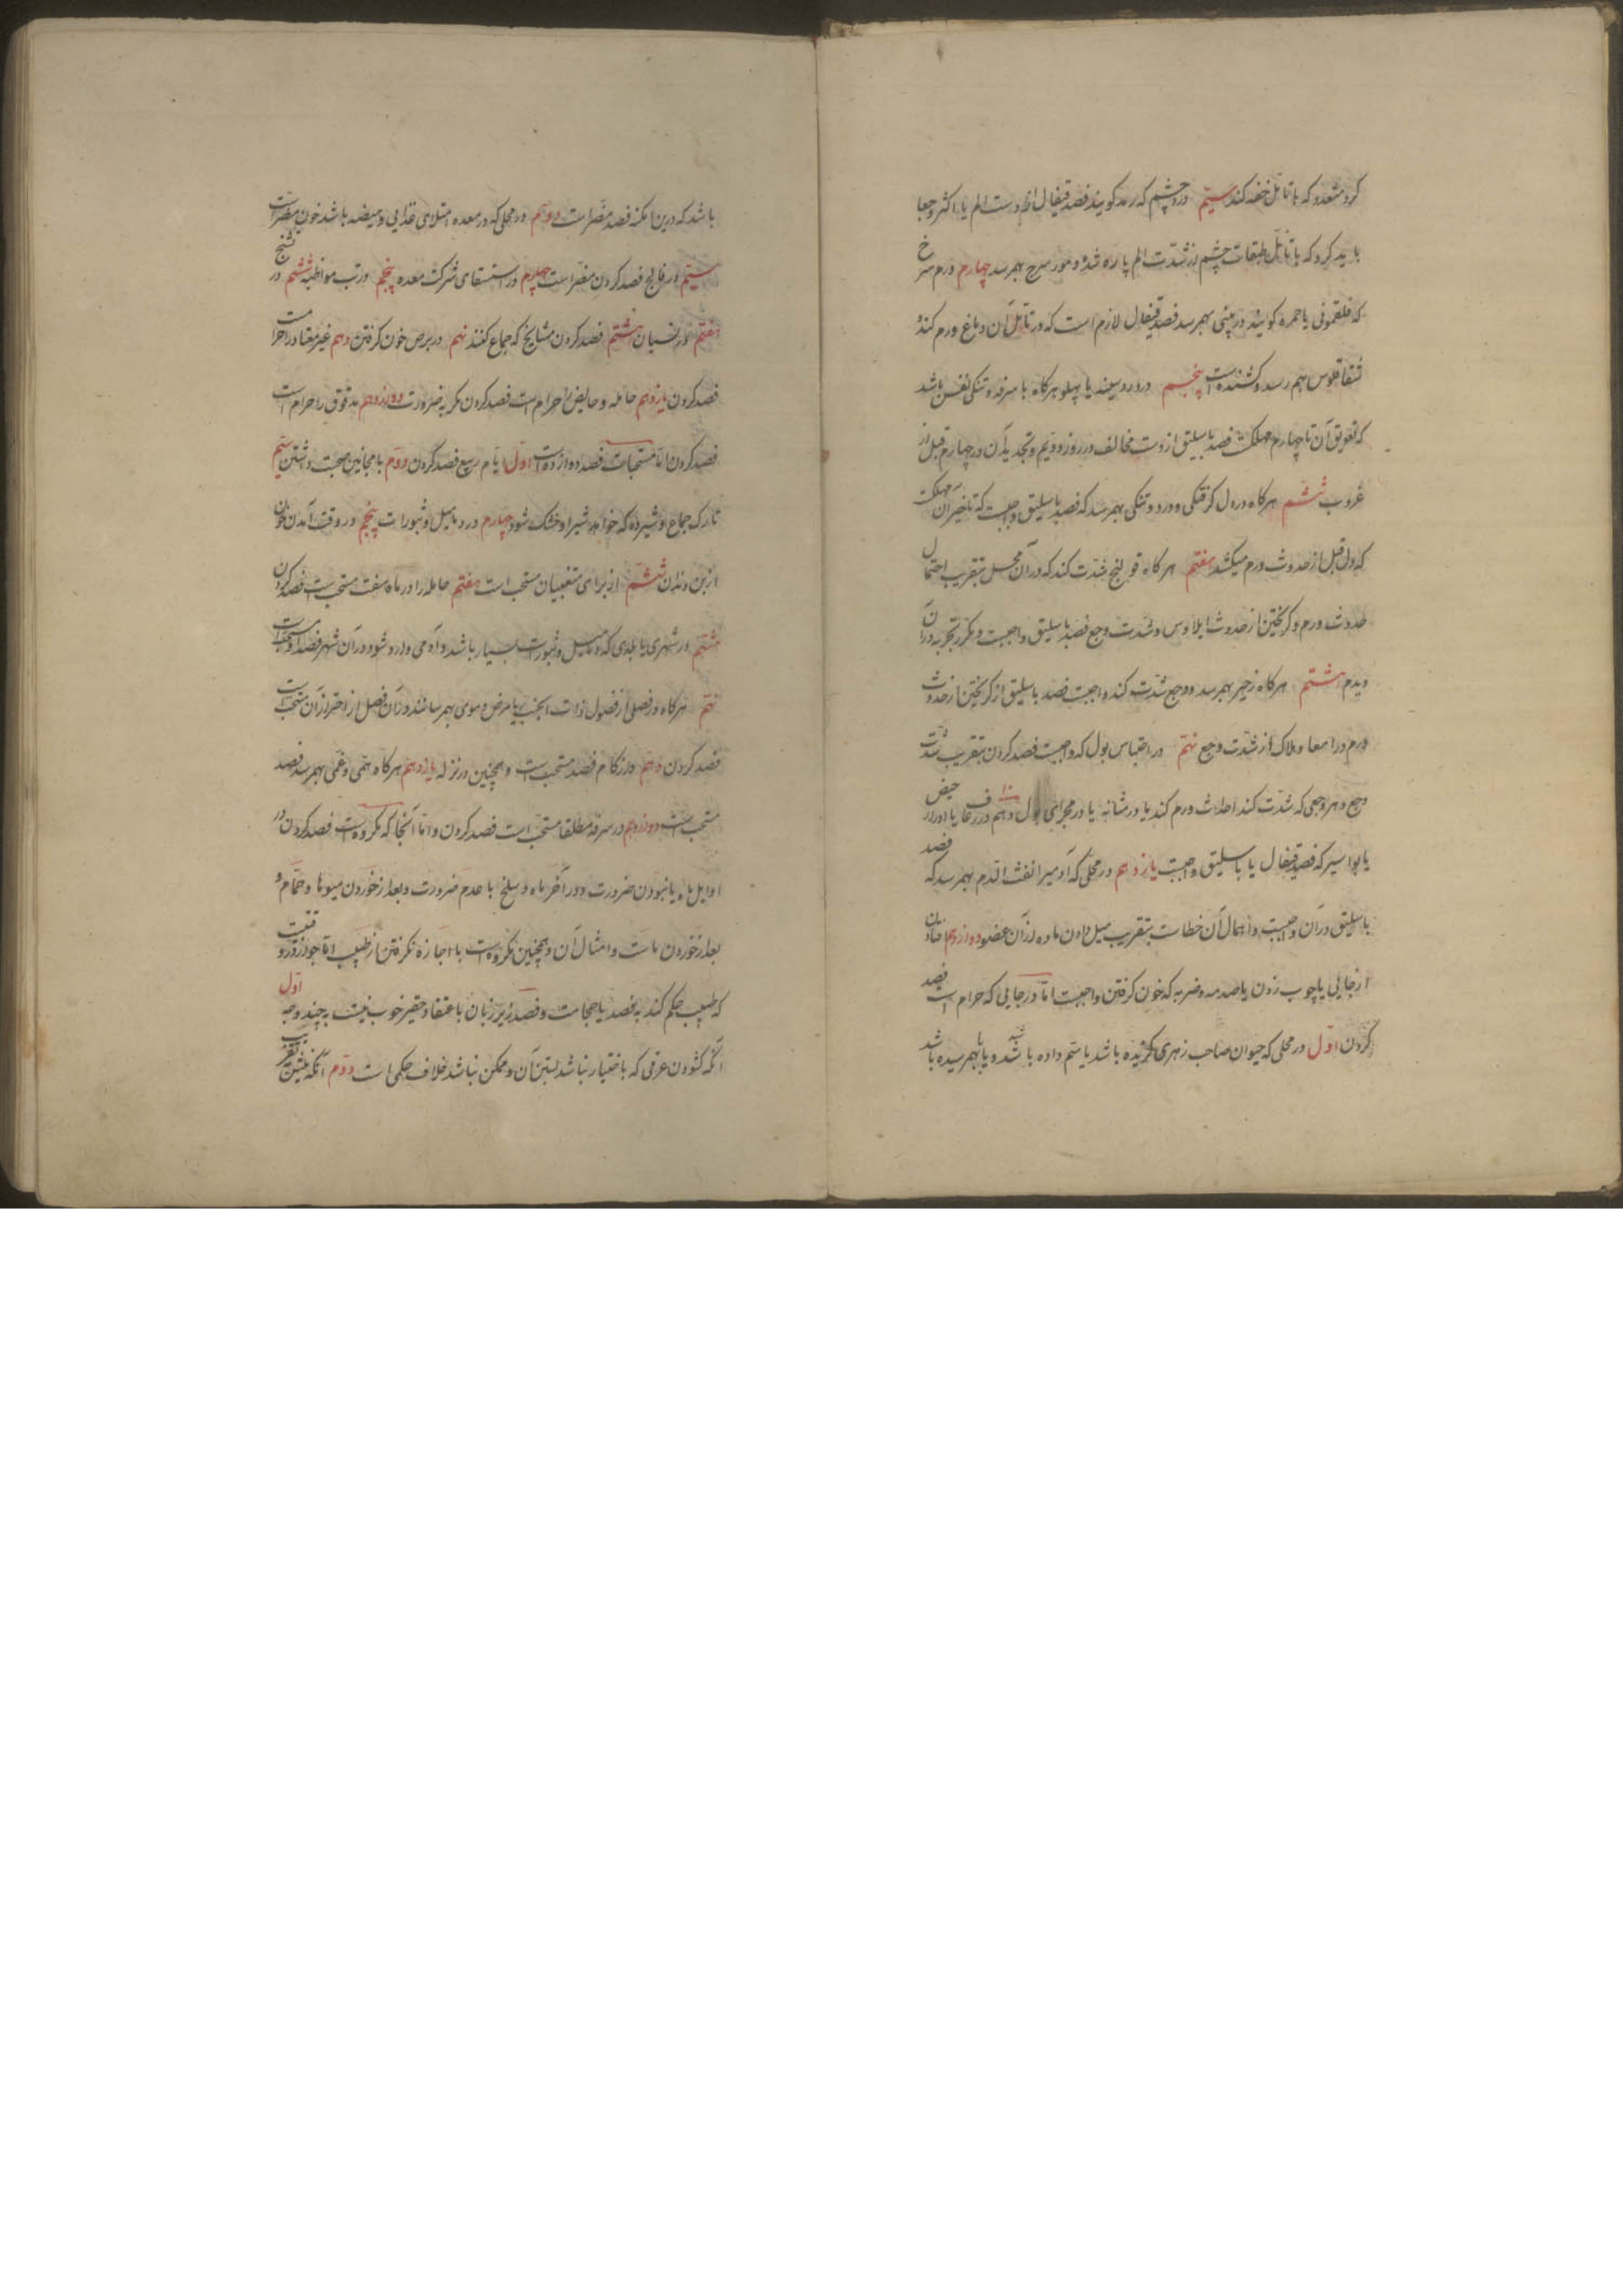 کرد متعدد که با تامل خفه کند سیم درد چشم که رمد کویند فصد قیفال از دست الم یا اکثر وجعا
باید کرد که با تامل طبقات چشم از شدت الم پاره شد و مورسرج بهمرسد چهارم ورم سرخ
که فلغمونی یا حمره کویند در بینی بهمرسد فصد قیفال لازم است که در تامل آن دماغ ورم کند و
شقاقلوس بهم رسد و کشنده است پنجم درد سینه یا پهلو هرکاه با سرفه و تنکی نفس باشد
که تعویق آن تا چهارم مهلکست فصد باسلیق از دست مخالف در روز دویم و تجدید آن در چهارم قبل از
غروب ششم هرکاه در دل کرفتکی و درد و تنکی بهمرسد که فصد باسلیق واجبست که تاخیر آن مهلکست
که دل قبل از حدوث ورم میکشد هفتم هرکاه قولنج شدت کند که در آن محل بتقریب احتمال
حدوث ورم و کریختن از حدوث ایلاوس و شدت وجع فصد باسلیق واجبست و مکرر تجربه در آن
دیدم هشتم هرکاه زحیر بهمرسد و وجع شدت کند واجبست فصد باسلیق از کریختن از حدوث
ورم در امعا و هلاک از شدت وجع نهم در احتباس بول که واجبست فصد کردن بتقریب شدت
وجع و هر وجعی که شدت کند احداث ورم کند یا در مثانه یا در مجرای بول دهم در رعاف یا ادرار حیض
یا بواسیر که فصد قیفال یا باسلیق واجبست یازدهم در محلی که آدمیرا نفث الدم بهمرسد که فصد
باسلیق در آن واجبست و اهمال آن خطاست بتقریب میل دادن ماده از آن عضو دوازدهم افتادن
از جایی یا چوب زدن یا صدمه و ضربه که خون کرفتن واجبست اما در جایی که حرام است فصد
کردن اول در محلی که حیوان صاحب زهری کزیده باشد یا سم داده باشد و یا بهمرسیده باشد
باشد که درین امکنه فصد مضر است دوم در محلی که در معده امتلای غذایی و هیضه باشد خون مضر است
سیم در فالج فصد کردن مضر است چهارم در استسقای شرکت معده پنجم در تب مواظبه ششم در تشنج
هفتم در نسیان هشتم فصد کردن مشایخ که جماع کنند نهم در برص خون کرفتن دهم غیر معتاد را حرامست
فصد کردن یازدهم حامله و حایض را حرام است فصد کردن مکر به ضرورت دوازدهم مدقوق را حرام است
فصد کردن اما مستحبات فصد دوازده است اول ایام ربیع فصد کردن دوم با مجانین صحبت داشتن سیم
تارک جماع و شیرده که خواهد شیر او خشک شود چهارم در دمامیل و بثورات پنجم در وقت آمدن خون
از بن دندان ششم از برای متغیبان مستحب است هفتم حامله را در ماه هفت مستحب است فصد کردن
هشتم در شهری یا بلدی که دمامیل و بثورات بسیار باشد و آدمی وارد شود در آن شهر فصد او مستحب است
نهم هرکاه در فصلی از فصول ذات الجنب یا مرض دموی بهمرساند در آن فصل از احتراز آن مستحب است
فصد کردن دهم در زکام فصد مستحب است و همچنین در نزله یازدهم هرکاه همی و غمی بهمرسد فصد
مستحب است دوازدهم در سرفه مطلقا مستحب است فصد کردن و اما آنجا که مکروهست فصد کردن در
اوایل ماه یا نبودن ضرورت و در آخر ماه و سلخ با عدم ضرورت و بعد از خوردن میوها و حمام و
بعد از خوردن ماست و امثال آن و همچنین مکروهست با اجازه نکرفتن از طبیب اما جواز در وقتیست
که طبیب حکم کند به فصد یا حجامت و فصد زیر زبان باعتقاد حقیر خوب نیست به چند وجه اول
آنکه کشودن عرقی که باختیار نباشد بستن آن و ممکن نباشد خلاف حکمی است دوم آنکه بیشتر بتقریب